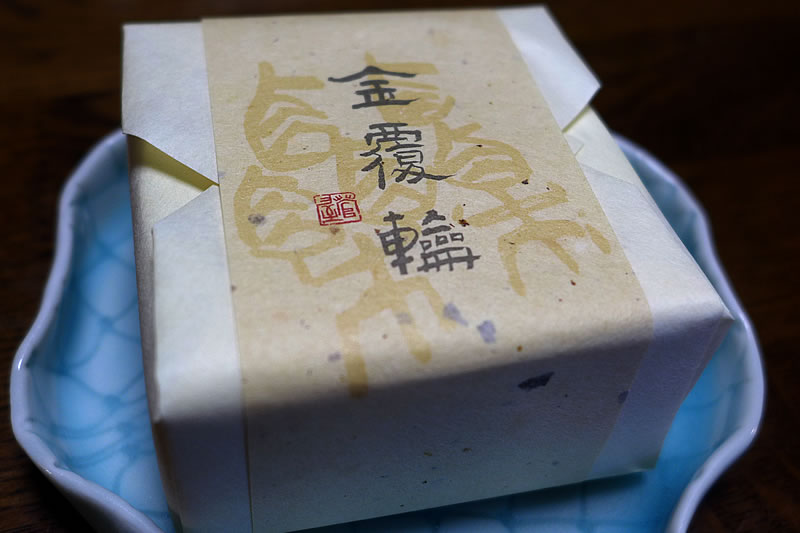 金覆輪